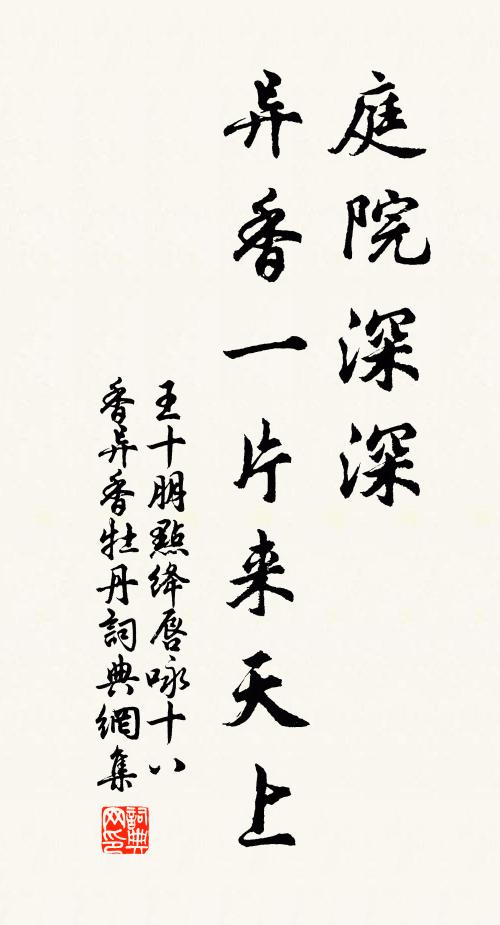 庭院深深
异香一片来天上
王十朋點絳唇咏十八
香异香牡丹詞典網集
詞典网印